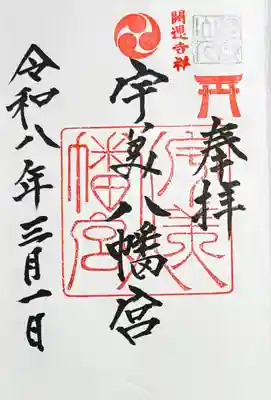 奉拝
開運神社
宇美八幡宮
宇美
八幡宮
令和八年三月一日